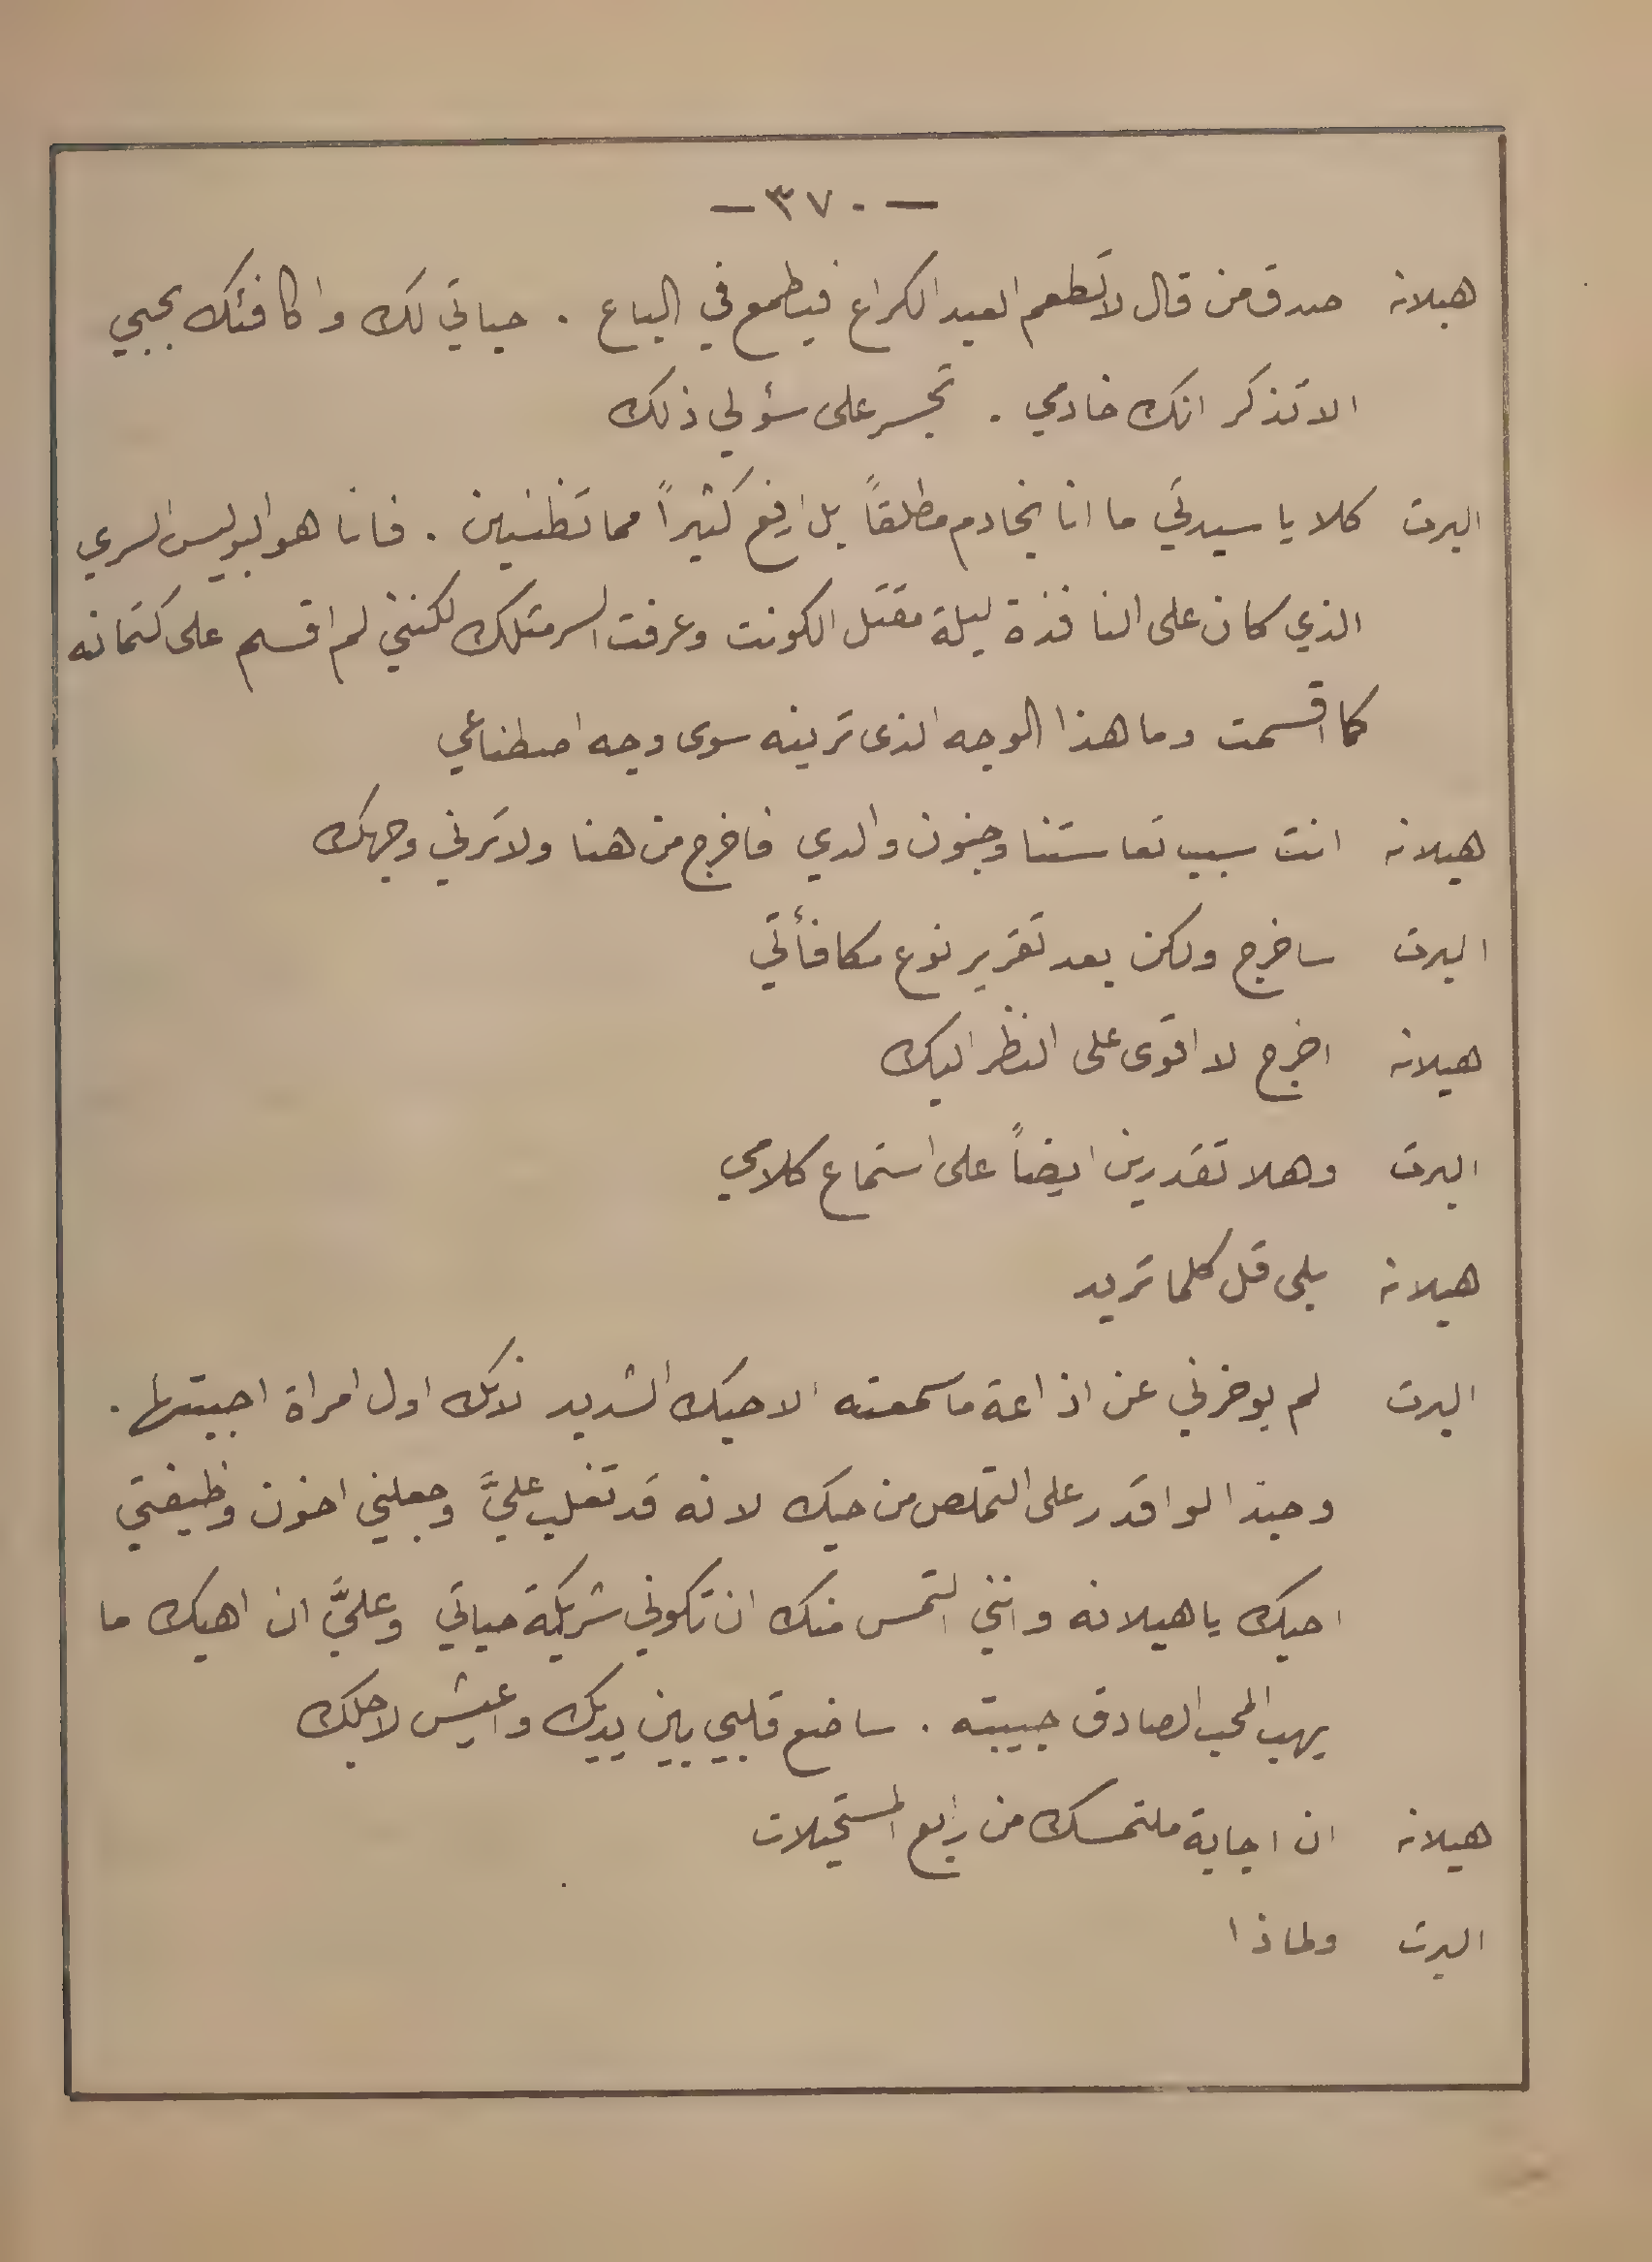 — ٣٧٠ —
هيلانه صدق من قال لا تطعم العبد الكراع فيطمع في الباع . حياتي لك واكافئك بحبي
الا تذكر انك خادمي . تجسر على سؤلي ذلك
البرت كلا يا سيدتي ما انا بخادم مطلقاً بل ارفع كثيراً مما تظنين . فانا هو البوليس السري
الذي كان على النافذة ليلة مقتل الكونت وعرفت السر مثلك لكنني لم اقسم على كتمانه
كما اقسمت وما هذا الوجه الذى ترينه سوى وجه اصطناعي
هيلانه انت سبب تعاستنا وجنون والدي فاخرج من هنا ولا ترني وجهك
البرت ساخرج ولكن بعد تقرير نوع مكافأتي
هيلانه اخرج لا اقوى على النظر اليك
البرت وهلا تقدرين ايضاً على استماع كلامي
هيلانه بلى قل كلما تريد
البرت لم يوخرني عن اذاعة ما سمعته الا حبك الشديد لانك اول امراة احببتها .
وحبذا لو اقدر على التملص من حبك لانه قد تغلب عليَّ وجعلني اخون وظيفتي
احبك يا هيلانه وانني التمس منك ان تكوني شريكة حياتي وعليَّ ان اهبك ما
يهب المحب الصادق حبيبته . ساضع قلبي بين يديك واعيش لاجلك
هيلانه ان اجابة ملتمسك من رابع المستحيلات
البرت ولماذا